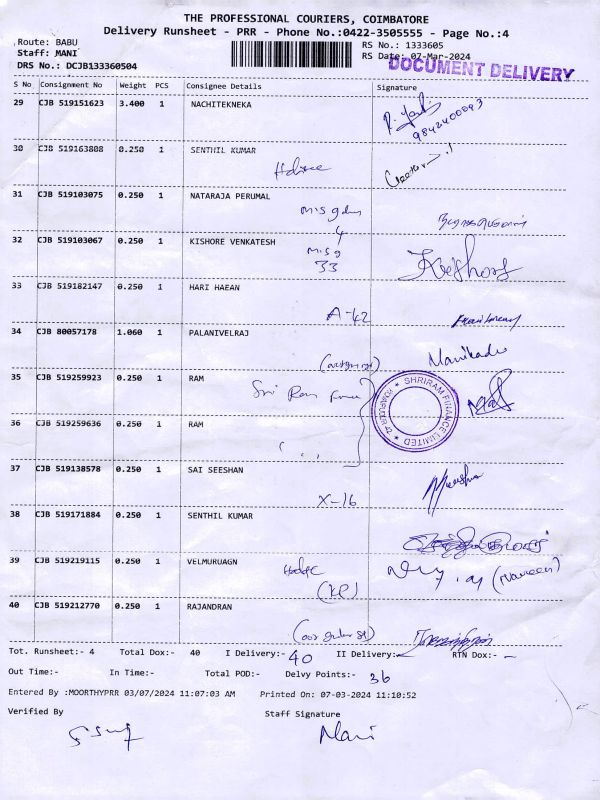 THE PROFESSIONAL COURIERS, COIMBATORE
Delivery Runsheet - PRR - Phone No.:0422-3505555 - Page No.:4
Route: BABU RS No.: 1333605
Staff: MANI RS Date: 07-Mar-2024
DRS No.: DCJB133360504 DOCUMENT DELIVERY
S No Consignment No Weight PCS Consignee Details Signature
29 CJB 519151623 3.400 1 NACHITEKNEKA
9842400093
30 CJB 519163808 0.250 1 SENTHIL KUMAR
31 CJB 519103075 0.250 1 NATARAJA PERUMAL
4
32 CJB 519103067 0.250 1 KISHORE VENKATESH
33
33 CJB 519182147 0.250 1 HARI HAEAN
A-42
34 CJB 80057178 1.060 1 PALANIVELRAJ
35 CJB 519259923 0.250 1 RAM
Sri Ram
SHRIRAM FINANCE LIMITED
36 CJB 519259636 0.250 1 RAM
37 CJB 519138578 0.250 1 SAI SEESHAN
X-16
38 CJB 519171884 0.250 1 SENTHIL KUMAR
39 CJB 519219115 0.250 1 VELMURUAGN
(Naveen)
40 CJB 519212770 0.250 1 RAJANDRAN
Tot. Runsheet:- 4 Total Dox:- 40 I Delivery:- 40 II Delivery:- RTN Dox:- -
Out Time:- In Time:- Total POD:- Delvy Points:- 36
Entered By :MOORTHYPRR 03/07/2024 11:07:03 AM Printed On: 07-03-2024 11:10:52
Verified By Staff Signature
Mani